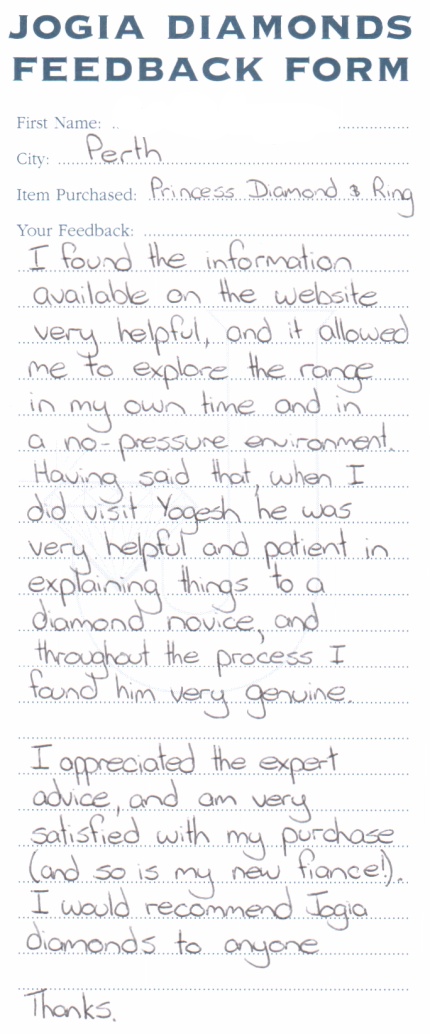 JOGIA DIAMONDS
FEEDBACK FORM
First Name:
City: Perth
Item Purchased: Princess Diamond & Ring
Your Feedback:
I found the information
available on the website
very helpful, and it allowed
me to explore the range
in my own time and in
a no-pressure environment.
Having said that, when I
did visit Yogesh he was
very helpful and patient in
explaining things to a
diamond novice, and
throughout the process I
found him very genuine.
I appreciated the expert
advice, and am very
satisfied with my purchase
(and so is my new fiance!).
I would recommend Jogia
diamonds to anyone
Thanks.